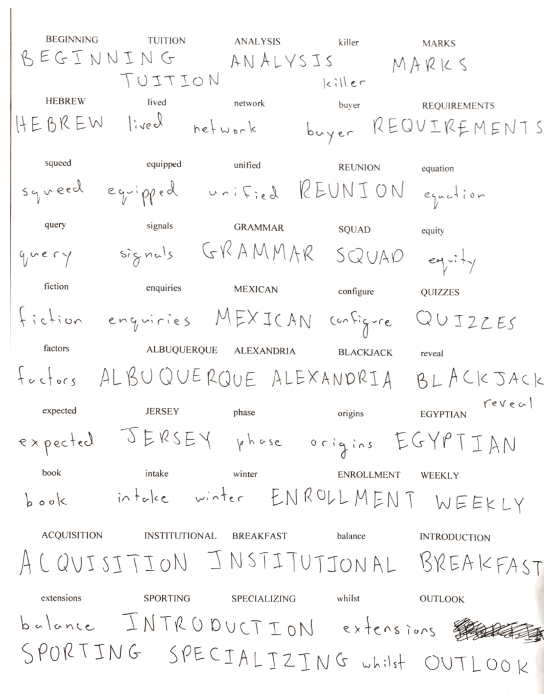 BEGINNING TUITION ANALYSIS killer MARKS
BEGINNING ANALYSIS MARKS
TUITION killer
HEBREW lived network buyer REQUIREMENTS
HEBREW lived network buyer REQUIREMENTS
squeed equipped unified REUNION equation
squeed equipped unified REUNION equation
query signals GRAMMAR SQUAD equity
query signals GRAMMAR SQUAD equity
fiction enquiries MEXICAN configure QUIZZES
fiction enquiries MEXICAN configure QUIZZES
factors ALBUQUERQUE ALEXANDRIA BLACKJACK reveal
factors ALBUQUERQUE ALEXANDRIA BLACKJACK
reveal
expected JERSEY phase origins EGYPTIAN
expected JERSEY phase origins EGYPTIAN
book intake winter ENROLLMENT WEEKLY
book intake winter ENROLLMENT WEEKLY
ACQUISITION INSTITUTIONAL BREAKFAST balance INTRODUCTION
ACQUISITION INSTITUTIONAL BREAKFAST
extensions SPORTING SPECIALIZING whilst OUTLOOK
balance INTRODUCTION extensions
SPORTING SPECIALIZING whilst OUTLOOK